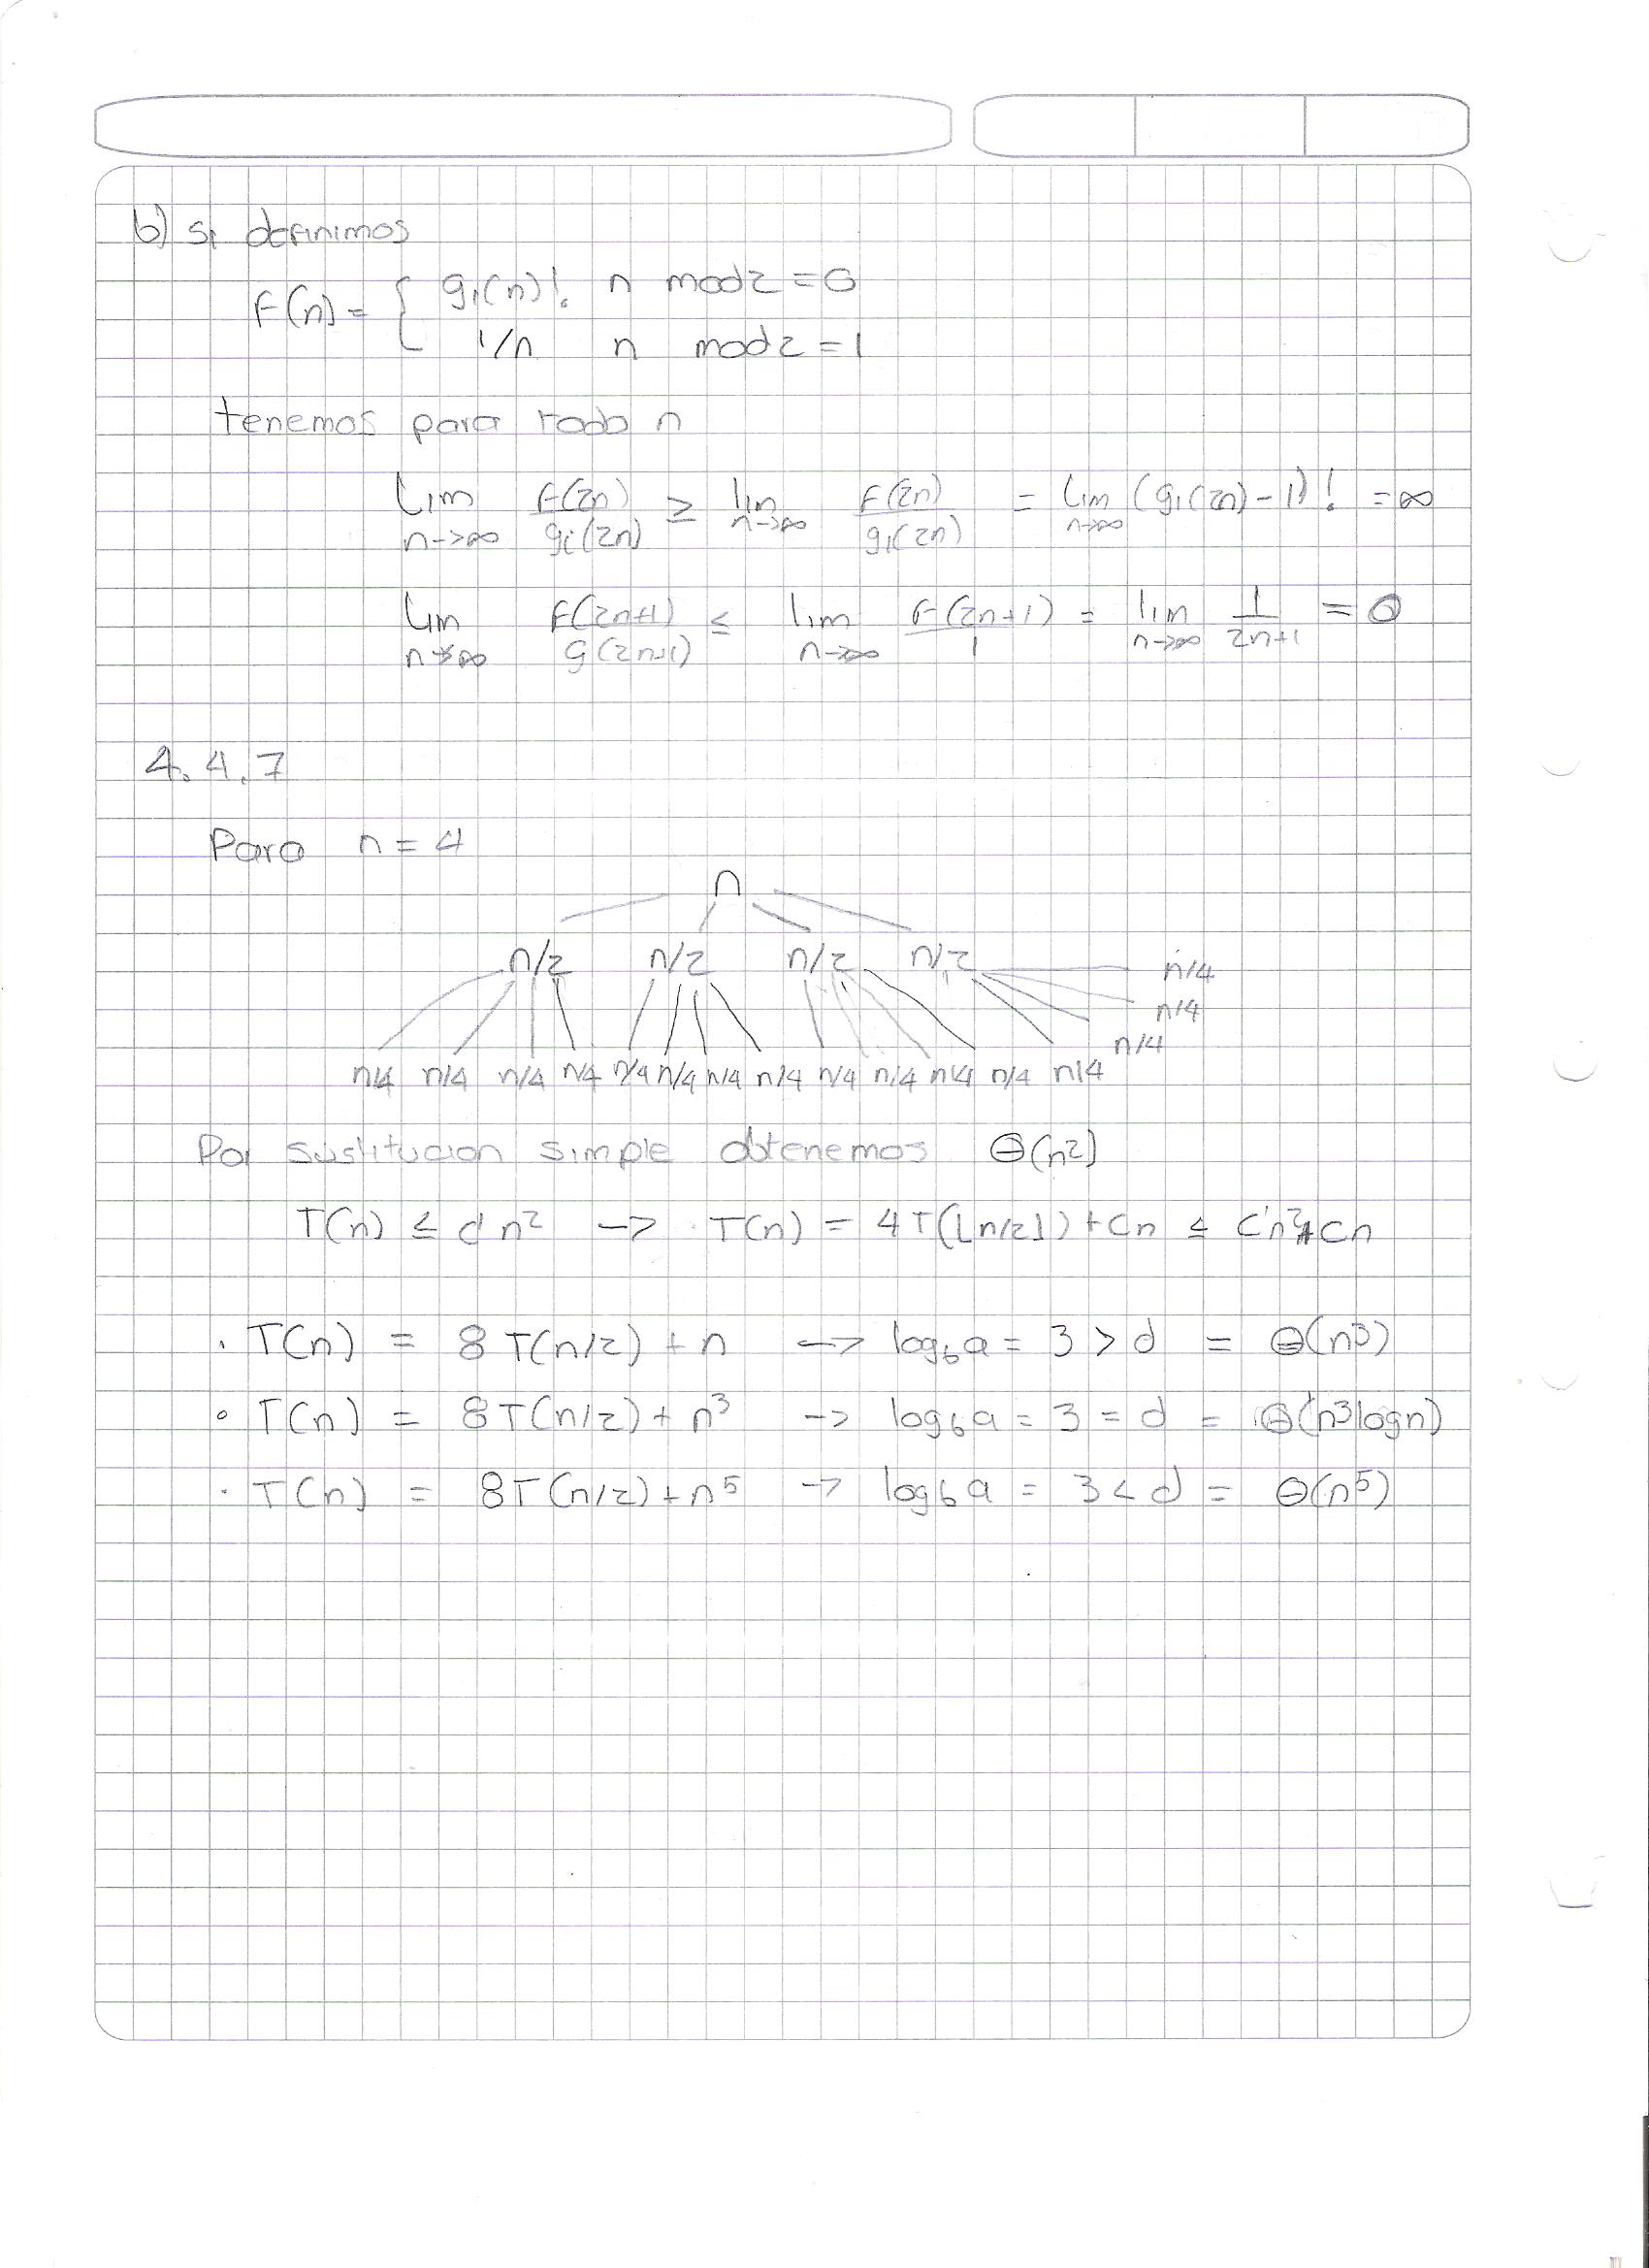 b) si definimos
F(n) = { g₁(n)! n mod 2 = 0
1/n n mod 2 = 1
tenemos para todo n
Lim n->∞ F(2n)/gi(2n) ≥ lim n->∞ F(2n)/g₁(2n) = Lim n->∞ (g₁(2n)-1)! = ∞
Lim n->∞ F(2n+1)/g(2n+1) ≤ lim n->∞ F(2n+1)/1 = lim n->∞ 1/2n+1 = 0
4.4.7
Para n = 4
n
n/2 n/2 n/2 n/2
n/4
n/4
n/4
n/4 n/4 n/4 n/4 n/4 n/4 n/4 n/4 n/4 n/4 n/4 n/4 n/4
Por sustitucion simple obtenemos Θ(n²)
T(n) ≤ d n² -> T(n) = 4T(⌊n/2⌋) + cn ≤ c'n² + cn
. T(n) = 8T(n/2) + n -> log_b a = 3 > d = Θ(n³)
. T(n) = 8T(n/2) + n³ -> log_b a = 3 = d = Θ(n³logn)
. T(n) = 8T(n/2) + n⁵ -> log_b a = 3 < d = Θ(n⁵)